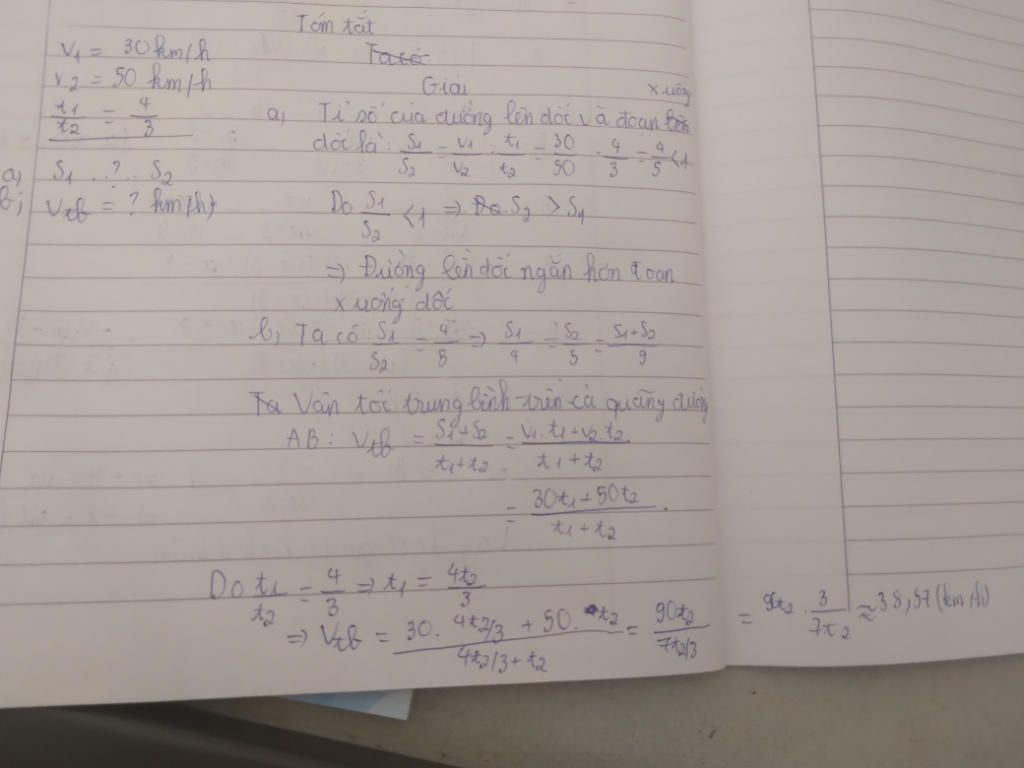 Tóm tắt
v1 = 30 km/h
Ta có
v2 = 50 km/h
Giải
t1/t2 = 4/3
xuống
a, Tỉ số của đường lên dốc và đoạn lên
dốc là: S1/S2 = v1/v2 . t1/t2 = 30/50 . 4/3 = 4/5 < 1
a, S1 ..?.. S2
b; Vtb = ? km/h)
Do S1/S2 < 1 => Do S2 > S1
=> Đường lên dốc ngắn hơn đoạn
xuống dốc
b, Ta có: S1/S2 = 4/5 => S1/4 = S2/5 = S1+S2/9
Ta Vận tốc trung bình trên cả quãng đường
AB: Vtb = S1+S2/t1+t2 = v1.t1+v2.t2/t1+t2
= 30t1+50t2/t1+t2.
Do t1/t2 = 4/3 => t1 = 4t2/3
=> Vtb = 30. 4t2/3 + 50. t2/4t2/3+t2 = 90t2/7t2/3 = 90t2 . 3/7t2 ≈ 38,57 (km/h)